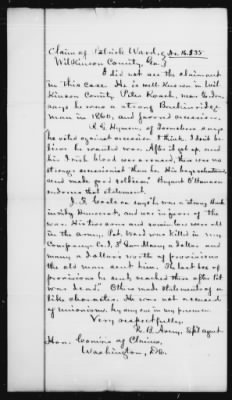 Claim of Patrick Ward, No. 16,535
Wilkinson County, Ga.
I did not see the claimant
in this case. He is well known in Wil
kinson County. Peter Roach, near
says he was a strong Breckinridge
man in 1860, and favored secession.
R. G. Hyman, of
he voted against secession I think. I don't be
lieve he wanted war. After it got up and
his Irish blood was aroused, there was no
stronger secessionist than he. His boys volunteered,
and made good soldiers. Bryant O'Bannon
endorses that statement.
J. R. says "he was a strong Breck
inridge Democrat, and was in favor of the
war. His two sons and son in law were all
in the army. Pat. Ward was killed in my
Company. Co. I. 3d Ga. Many a dollar and
many a dollar's worth of provisions
the old man sent him. The last box of
provisions he sent, reached there after Pat
was dead." Others made statements of a
like character. He was not accused
of unionism by any one in my presence.
Very respectfully,
R. B. Avery, Spl agent
Hon. Coms of Claims,
Washington, D.C.